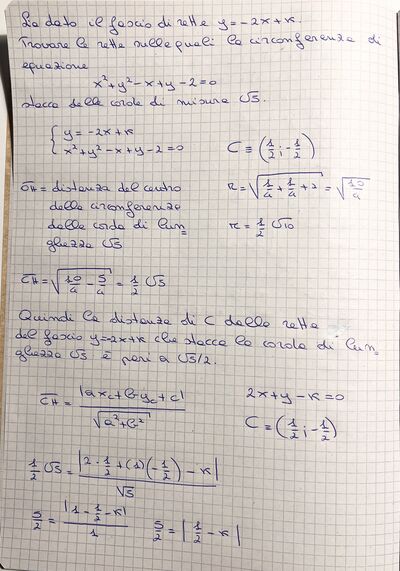 Sia dato il fascio di rette y=-2x+k.
Trovare le rette sulle quali la circonferenza di
equazione
x²+y²-x+y-2=0
stacca delle corde di misura √5.
{ y=-2x+k
x²+y²-x+y-2=0
C ≡ (1/2; -1/2)
CH = distanza del centro
della circonferenza
dalla corda di lun=
ghezza √5
r = √(1/4 + 1/4 + 2) = √(10/4)
r = 1/2 √10
CH = √(10/4 - 5/4) = 1/2 √5
Quindi la distanza di C dalle rette
del fascio y=-2x+k che stacca la corda di lun=
ghezza √5 è pari a √5/2.
CH = |ax_c+by_c+c| / √(a²+b²)
2x+y-k=0
C ≡ (1/2; -1/2)
1/2 √5 = |2·1/2+(1)(-1/2)-k| / √5
5/2 = |1-1/2-k| / 1
5/2 = |1/2-k|